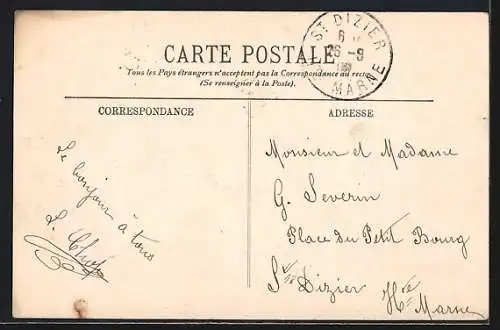 ST DIZIER
26 -9
MARNE
CARTE POSTALE
Tous les Pays étrangers n'acceptent pas la Correspondance au recto
(Se renseigner à la Poste).
CORRESPONDANCE
Le bonjour à tous
L.
ADRESSE
Monsieur et Madame
G. Severin
Place du Petit Bourg
St Dizier
Hte Marne